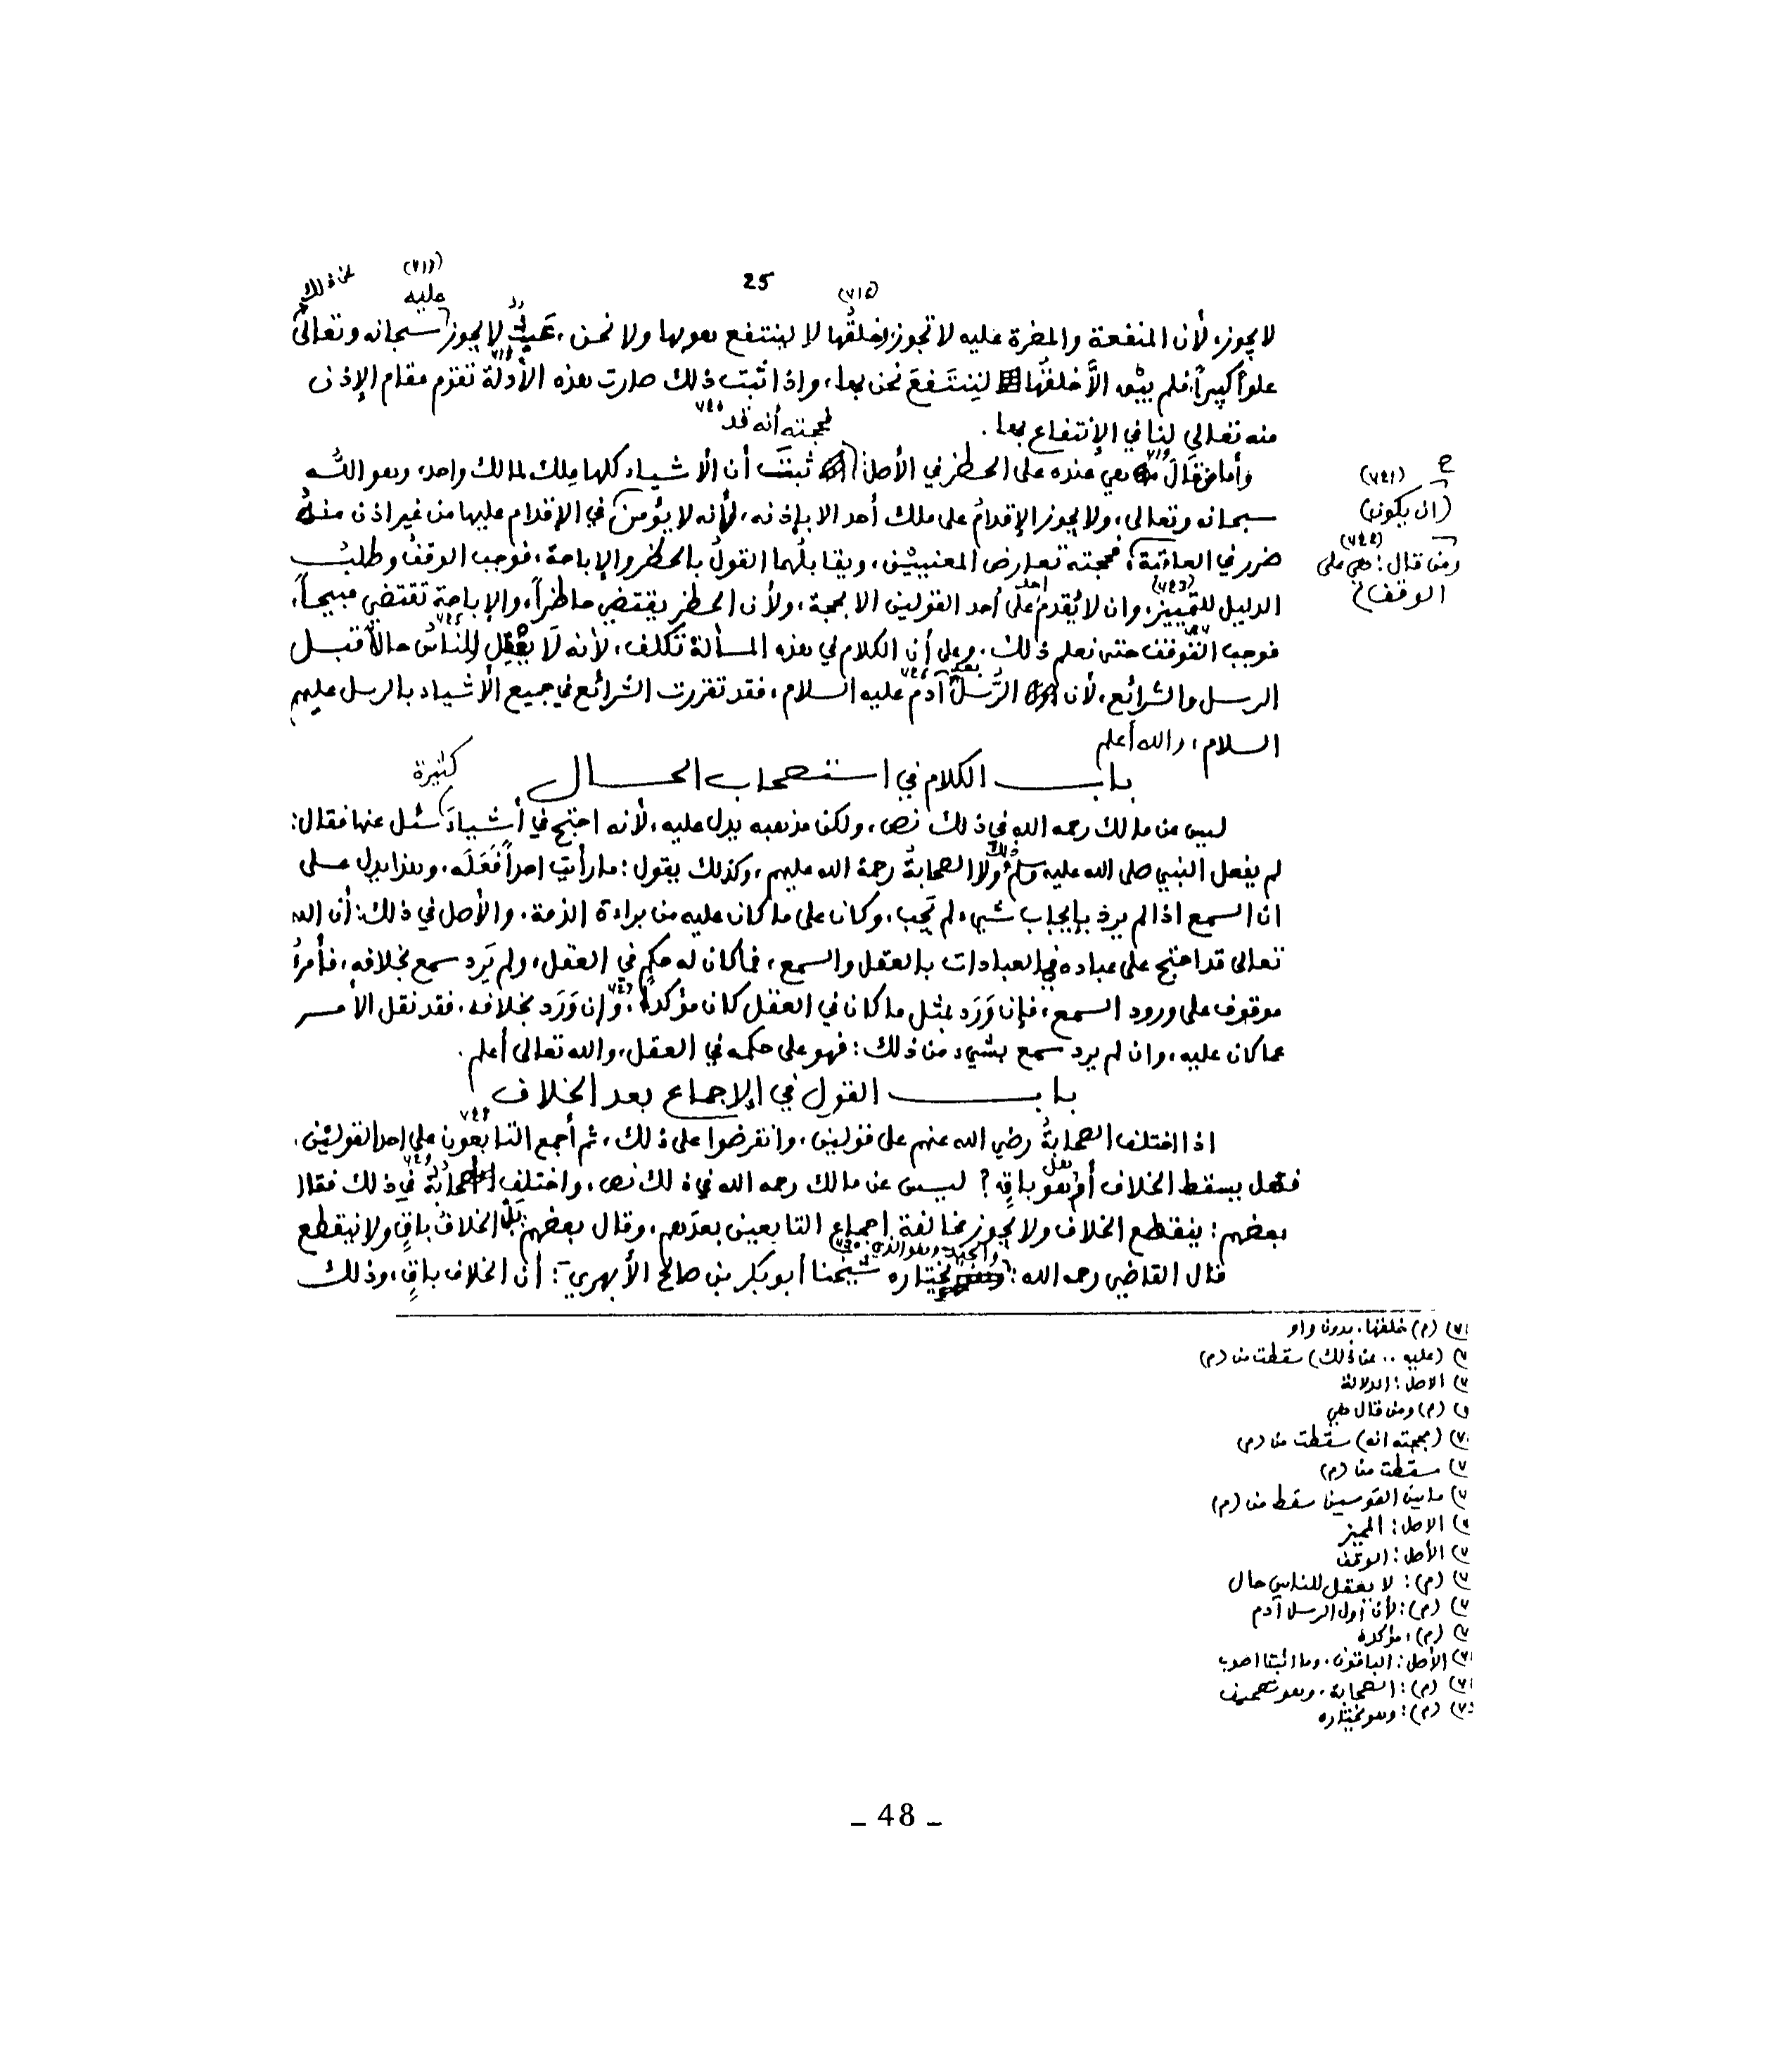 25
(٧٣٦)
عليه
عن ذلك
(٧٣٥)
لا يجوز، لأن المنفعة والمضرة عليه لا تجوز، وخلقُها لا لينتفع هو بها ولا نحن، عَبثٌ لا يجوز سبحانه وتعالى
علواً كبيراً، فلم يبْق إلاَّ خلقُها لنِنتَفعَ نحن بها، واذا ثبت ذلك صارت هذه الأدلة تقوم مقام الإذن
منه تعالى لنا في الإنتفاع بها.
فحجته أنه قد
وأما من قال هي عنده على الحظر في الأصل ثبت أن الأشياء كلها ملك لمالك واحد، وهو الله
سبحانه وتعالى، ولا يجوز الإقدام على ملك أحد الا بإذنه، لأنه لا يؤمن في الإقدام عليها من غير اذن منه
(٧٤١)
(ان يكون)
ضرر في العاقبة، فحجته تعارض المعنييْن، ويقابلُهما القولُ بالحظر والإباحة، فوجب الوقفُ وطلبُ
(٧٤٢)
ومن قال: هي على
الوقف
الدليل للتمييز، وان لا يُقدم احد على أحد القولين الا بحجة، ولأن الحظر يقتضي حاظراً، والإباحة تقتضي مبيحاً،
فوجب التوقف حتى نعلم ذلك. وعلى أن الكلام في هذه المسألة تكلف، لأنه لا يعقل للناس حالاً قبل
الرسل والشرائع، لأن الرُّسل آدم عليه السلام، فقد تقررت الشرائع في جميع الأشياء بالرسل عليهم
السلام، والله أعلم
باب الكلام في استصحاب الحال
كثيرة
ليس عن مالك رحمه الله في ذلك نص، ولكن مذهبه يدل عليه، لأنه احتج في أشياءَ سئل عنها فقال:
لم يفعل النبي صلى الله عليه وسلم ذلك ولا الصحابةُ رحمة الله عليهم، وكذلك يقول: ما رأيت احداً فَعَلَه، وهذا يدل على
ان السمع اذا لم يرد بإيجاب شيء لم يَجب، وكان على ما كان عليه من براءة الذمة. والأصل في ذلك: أن الله
تعالى قد احتج على عباده في العبادات بالعقل والسمع، فما كان له حكم في العقل، ولم يَرد سمع بخلافه، فأمرُه
موقوف على ورود السمع، فإن وَرَد بمثل ما كان في العقل كان مؤكداً، وإن وَرَد بخلافه، فقد نقل الأمر
عما كان عليه، وان لم يرد سمع بشيء من ذلك: فهو على حكمه في العقل، والله تعالى أعلم.
باب القول في الإجماع بعد الخلاف
اذا اختلف الصحابةُ رضي الله عنهم على قولين، وانقرضوا على ذلك، ثم أجمع التابعون على احد القولين،
فهل يسقط الخلاف أم هو باقٍ؟ ليس عن مالك رحمه الله في ذلك نص، واختلف في ذلك فقال
بعضهم: ينقطع الخلاف ولا يجوز مخالفة إجماع التابعين بعدهم، وقال بعضهم: بل الخلافُ باقٍ ولا ينقطع
قال القاضي رحمه الله: يختاره شيخنا أبو بكر بن صالح الأبهري: أن الخلاف باقٍ، وذلك
(م) خلقها، بدون واو
(عليه .. عن ذلك) سقطت من (م)
الاصل: الدلالة
(م) ومن قال هي
(فحجته انه) سقطت من (م)
سقطت من (م)
ما بين القوسين سقط من (م)
الاصل: المميز
الأصل: الوقف
(م): لا يعقل للناس حال
(م): لأن أول الرسل آدم
(م): مؤكدة
الأصل: الباقون، وما اثبتنا اصوب
(م): الصحابة، وهو تصحيف
(م): وهو يختاره
_ 48 _